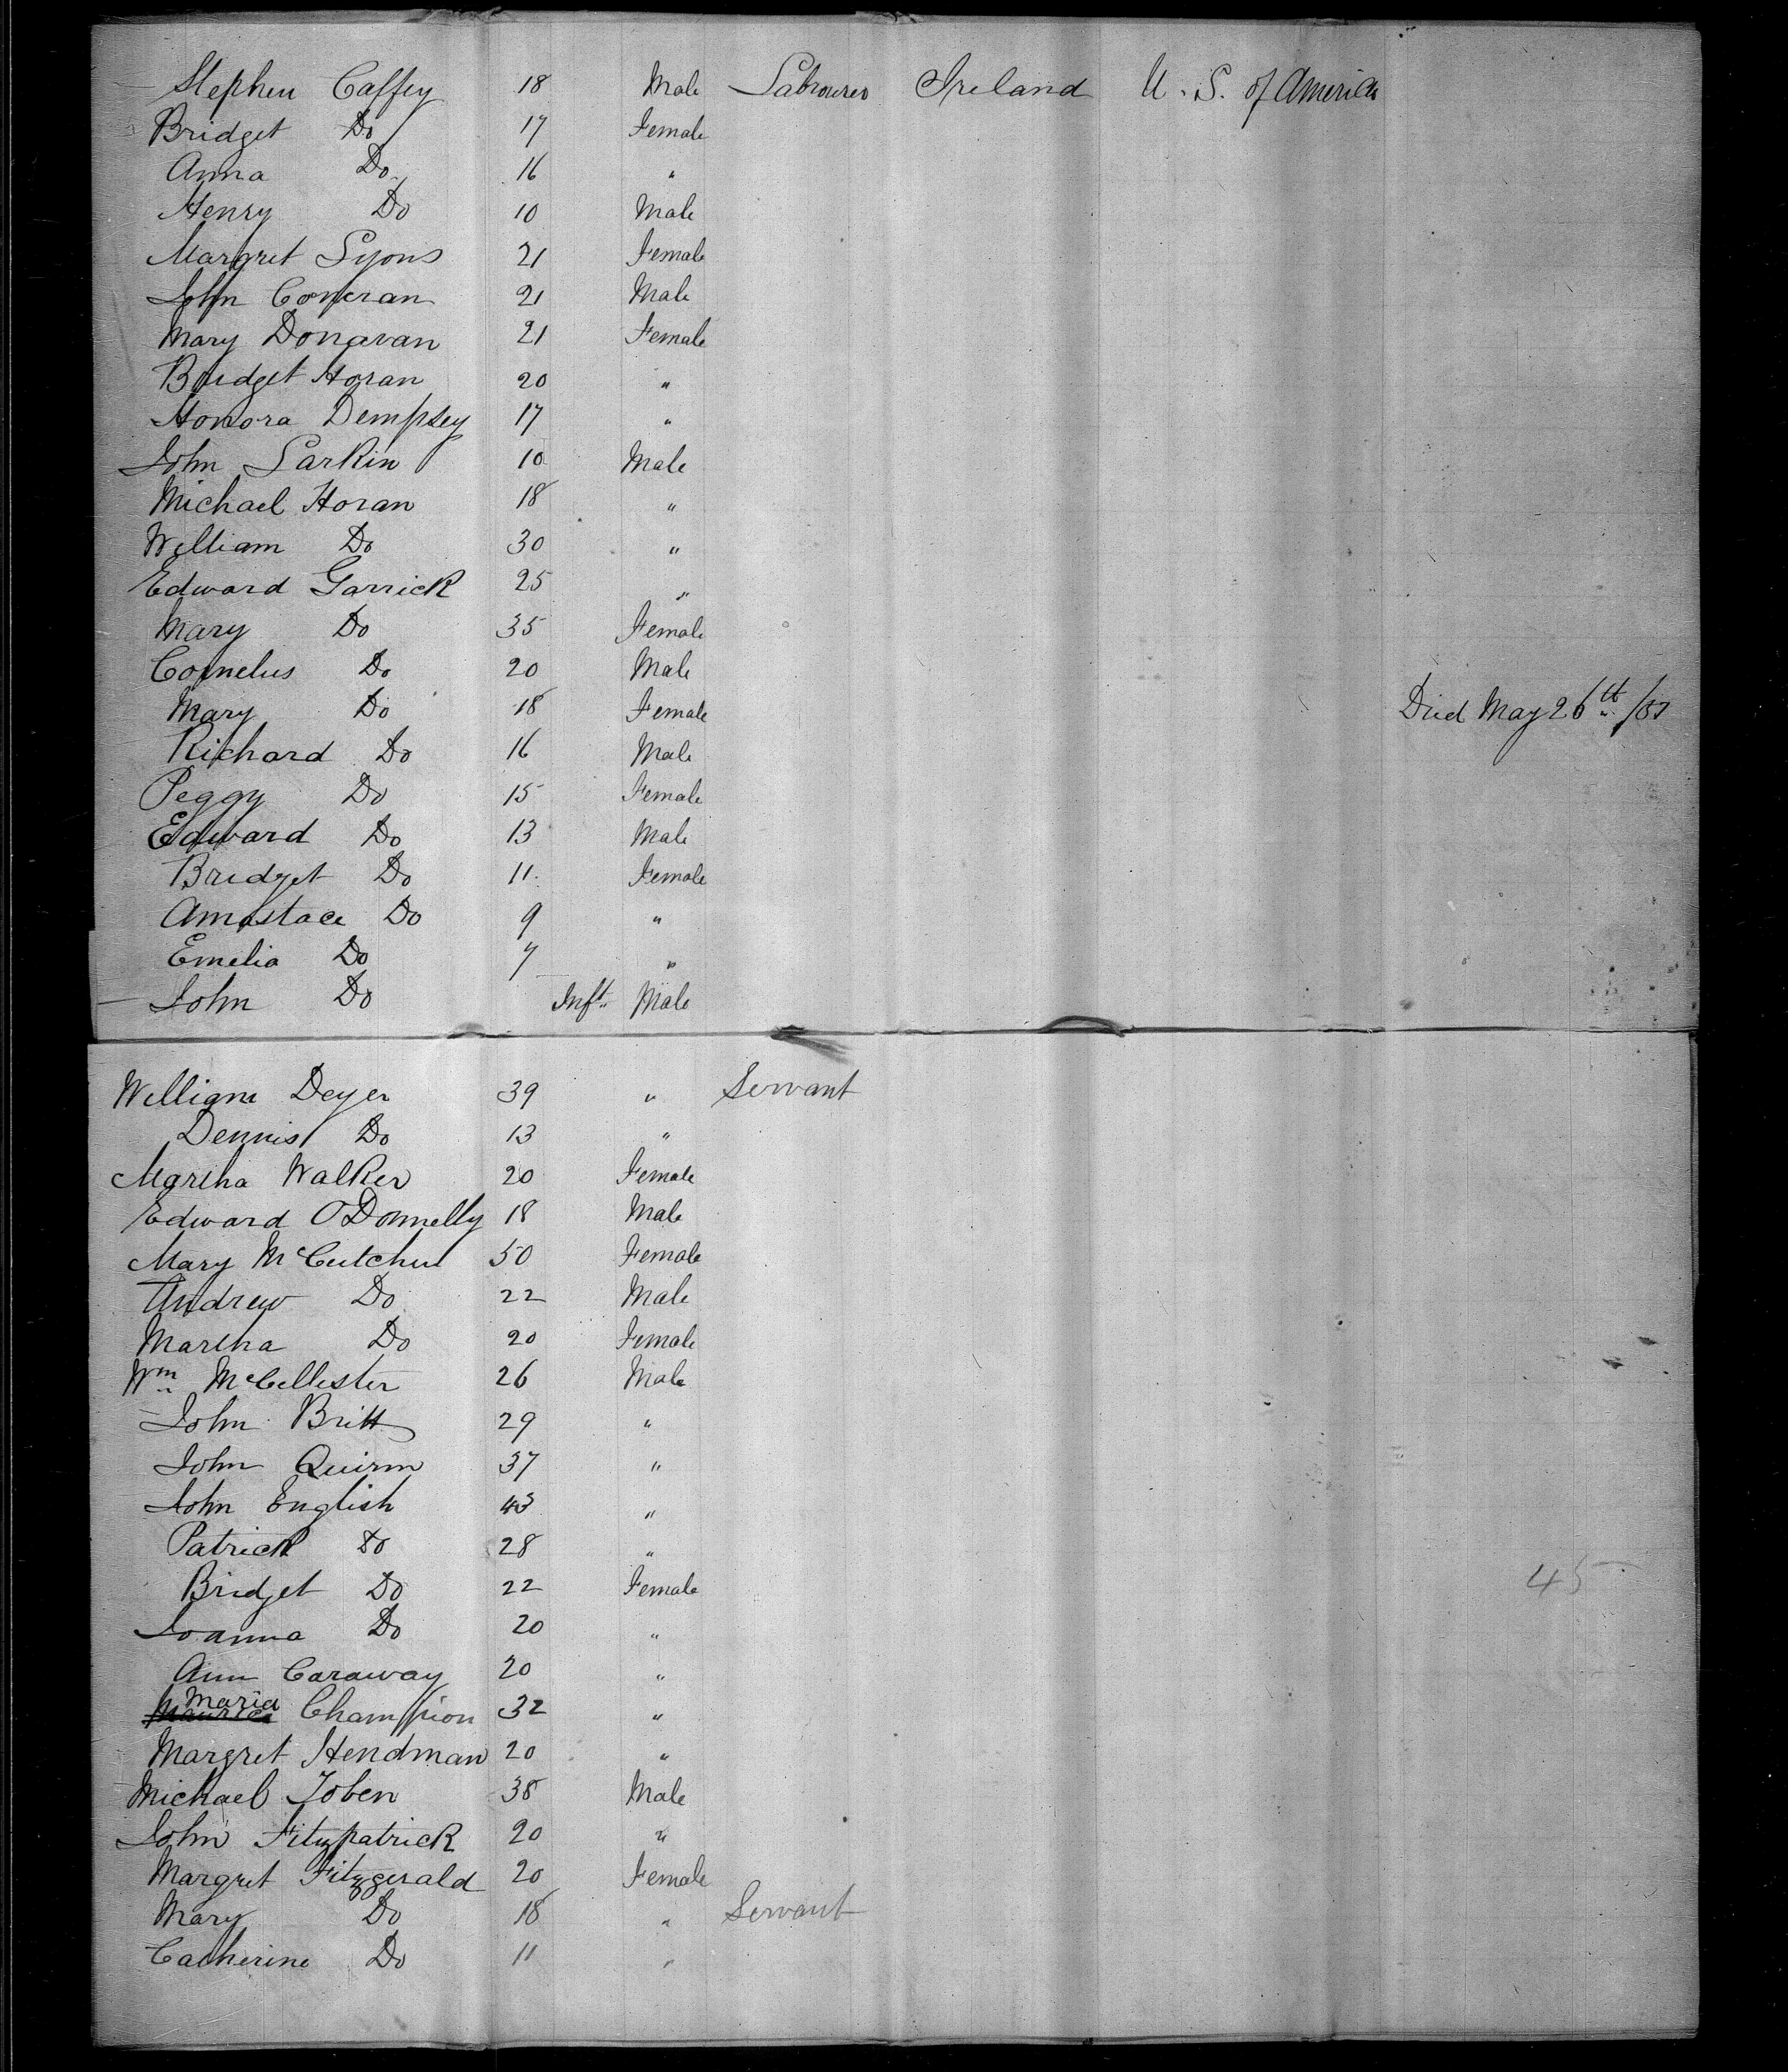 Stephen Caffey 18 Male Labourer Ireland U. S. of America
Bridget Do 17 Female
Anna Do 16 "
Henry Do 10 Male
Margret Lyons 21 Female
John Corcran 21 Male
Mary Donavan 21 Female
Bridget Horan 20 "
Honora Dempsey 17 "
John Larkin 10 Male
Michael Horan 18 "
William Do 30 "
Edward Garrick 25 "
Mary Do 35 Female
Cornelus Do 20 Male
Mary Do 18 Female Died May 26th /51
Richard Do 16 Male
Peggy Do 15 Female
Edward Do 13 Male
Bridget Do 11 Female
Anastace Do 9 "
Emelia Do 7 "
John Do Inft. Male
William Deyer 39 " Servant
Dennis Do 13 "
Martha Walker 20 Female
Edward O'Donnelly 18 Male
Mary McCutchen 50 Female
Andrew Do 22 Male
Martha Do 20 Female
Wm McCellester 26 Male
John Britt 29 "
John Quinn 37 "
John English 43 "
Patrick Do 28 "
Bridget Do 22 Female 45
Joanna Do 20 "
Ann Caraway 20 "
Maria Champion 32 "
Margret Hendman 20 "
Michael Toben 38 Male
John Fitzpatrick 20 "
Margret Fitzgerald 20 Female
Mary Do 18 " Servant
Catherine Do 11 "